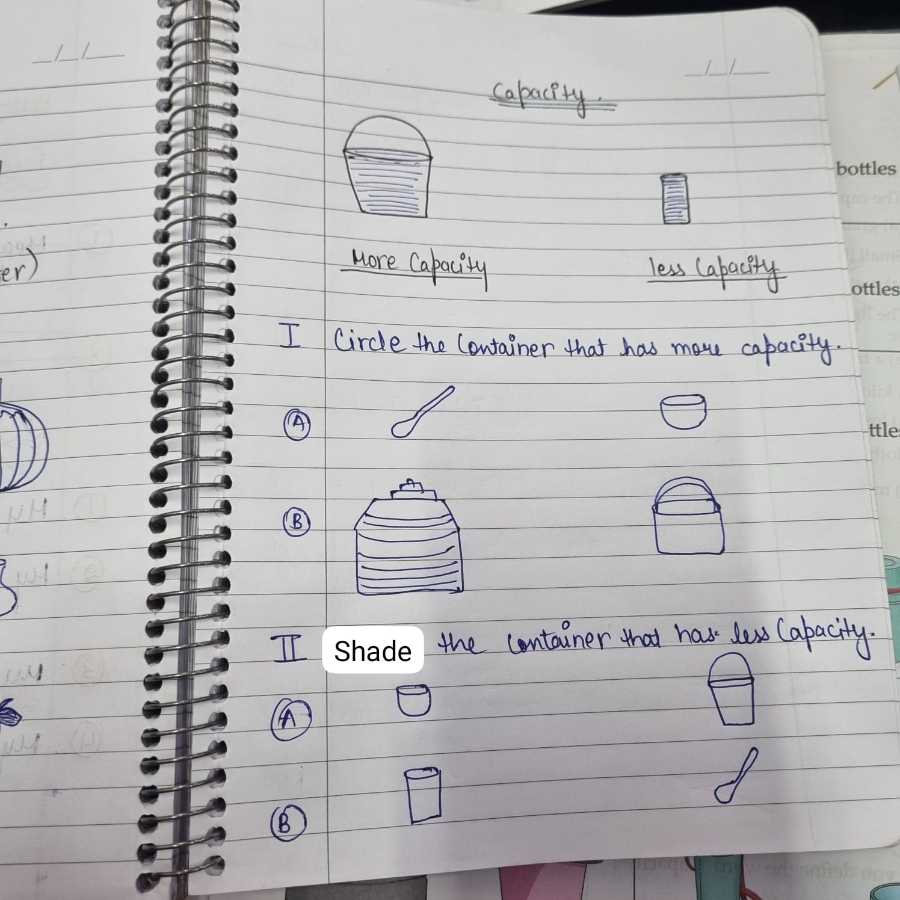 Capacity.
More Capacity
less Capacity
I Circle the Container that has more capacity.
A
B
II Shade the Container that has less Capacity.
A
B
er)
bottles
ottles
ttle